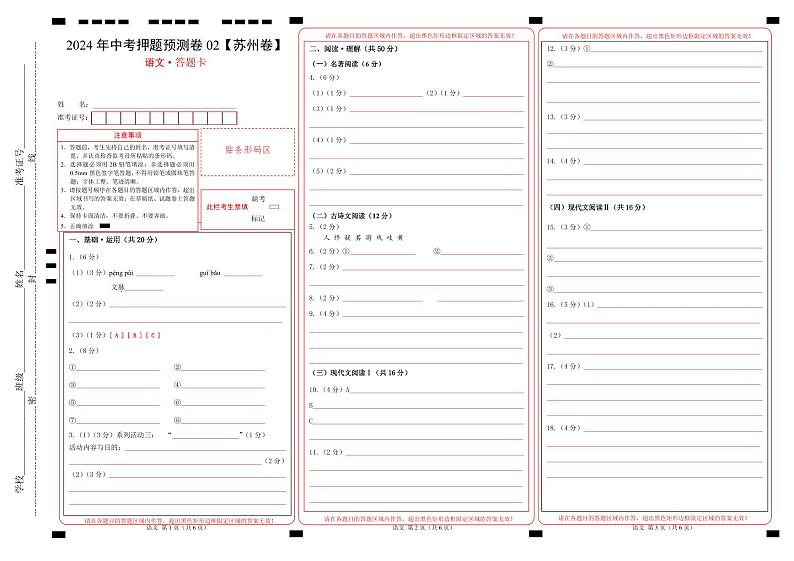 2024 年中考押题预测卷 02【苏州卷】
语文·答题卡
姓 名：
准考证号：
注意事项
1．答题前，考生先将自己的姓名，准考证号填写清
楚，并认真检查监考员所粘贴的条形码。
2．选择题必须用 2B 铅笔填涂；非选择题必须用
0.5mm 黑色签字笔答题，不得用铅笔或圆珠笔答
题；字体工整、笔迹清晰。
3．请按题号顺序在各题目的答题区域内作答，超出
区域书写的答案无效；在草稿纸、试题卷上答题
无效。
4．保持卡面清洁，不要折叠、不要弄破。
5．正确填涂
贴条形码区
此栏考生禁填
缺考
标记
一、基础·运用（共 20 分）
1.（6分）
（1）（3 分）péng pài guī bǎo
文脉
（2）（2分）
（3）（1分）[ A ] [ B ] [ C ]
2.（8分）
① ②
③ ④
⑤ ⑥
⑦ ⑧
3.（1）（3 分）系列活动三： “ ”（1分）
活动内容与目的：
（2 分）
（2）（3分）
请在各题目的答题区域内作答，超出黑色矩形边框限定区域的答案无效！
语文 第 1 页（共 6 页）
请在各题目的答题区域内作答，超出黑色矩形边框限定区域的答案无效！
二、阅读·理解（共 50 分）
（一）名著阅读（6 分）
4.（6分）
（1）（1分） （2）（1分）
（3）（1分）
（4）（1分）
（5）（2分）
（二）古诗文阅读（12 分）
5.（2分）
人 终 疑 其 游 戏 岐 黄
6.（2分）① ②
7.（2分）
8.（2分）
9.（4分）
（三）现代文阅读Ⅰ（共 16 分）
10.（4分）A
B
C
11.（2分）
请在各题目的答题区域内作答，超出黑色矩形边框限定区域的答案无效！
语文 第 2 页（共 6 页）
请在各题目的答题区域内作答，超出黑色矩形边框限定区域的答案无效！
12.（3分）①
②
13.（3分）
14.（4分）
（四）现代文阅读Ⅱ（共 16 分）
15.（3分）①
②
③
16.（5分）（1）
（2）
17.（4分）
18.（4分）
请在各题目的答题区域内作答，超出黑色矩形边框限定区域的答案无效！
语文 第 3 页（共 6 页）
学校 班级 姓名 准考证号
密 封 线